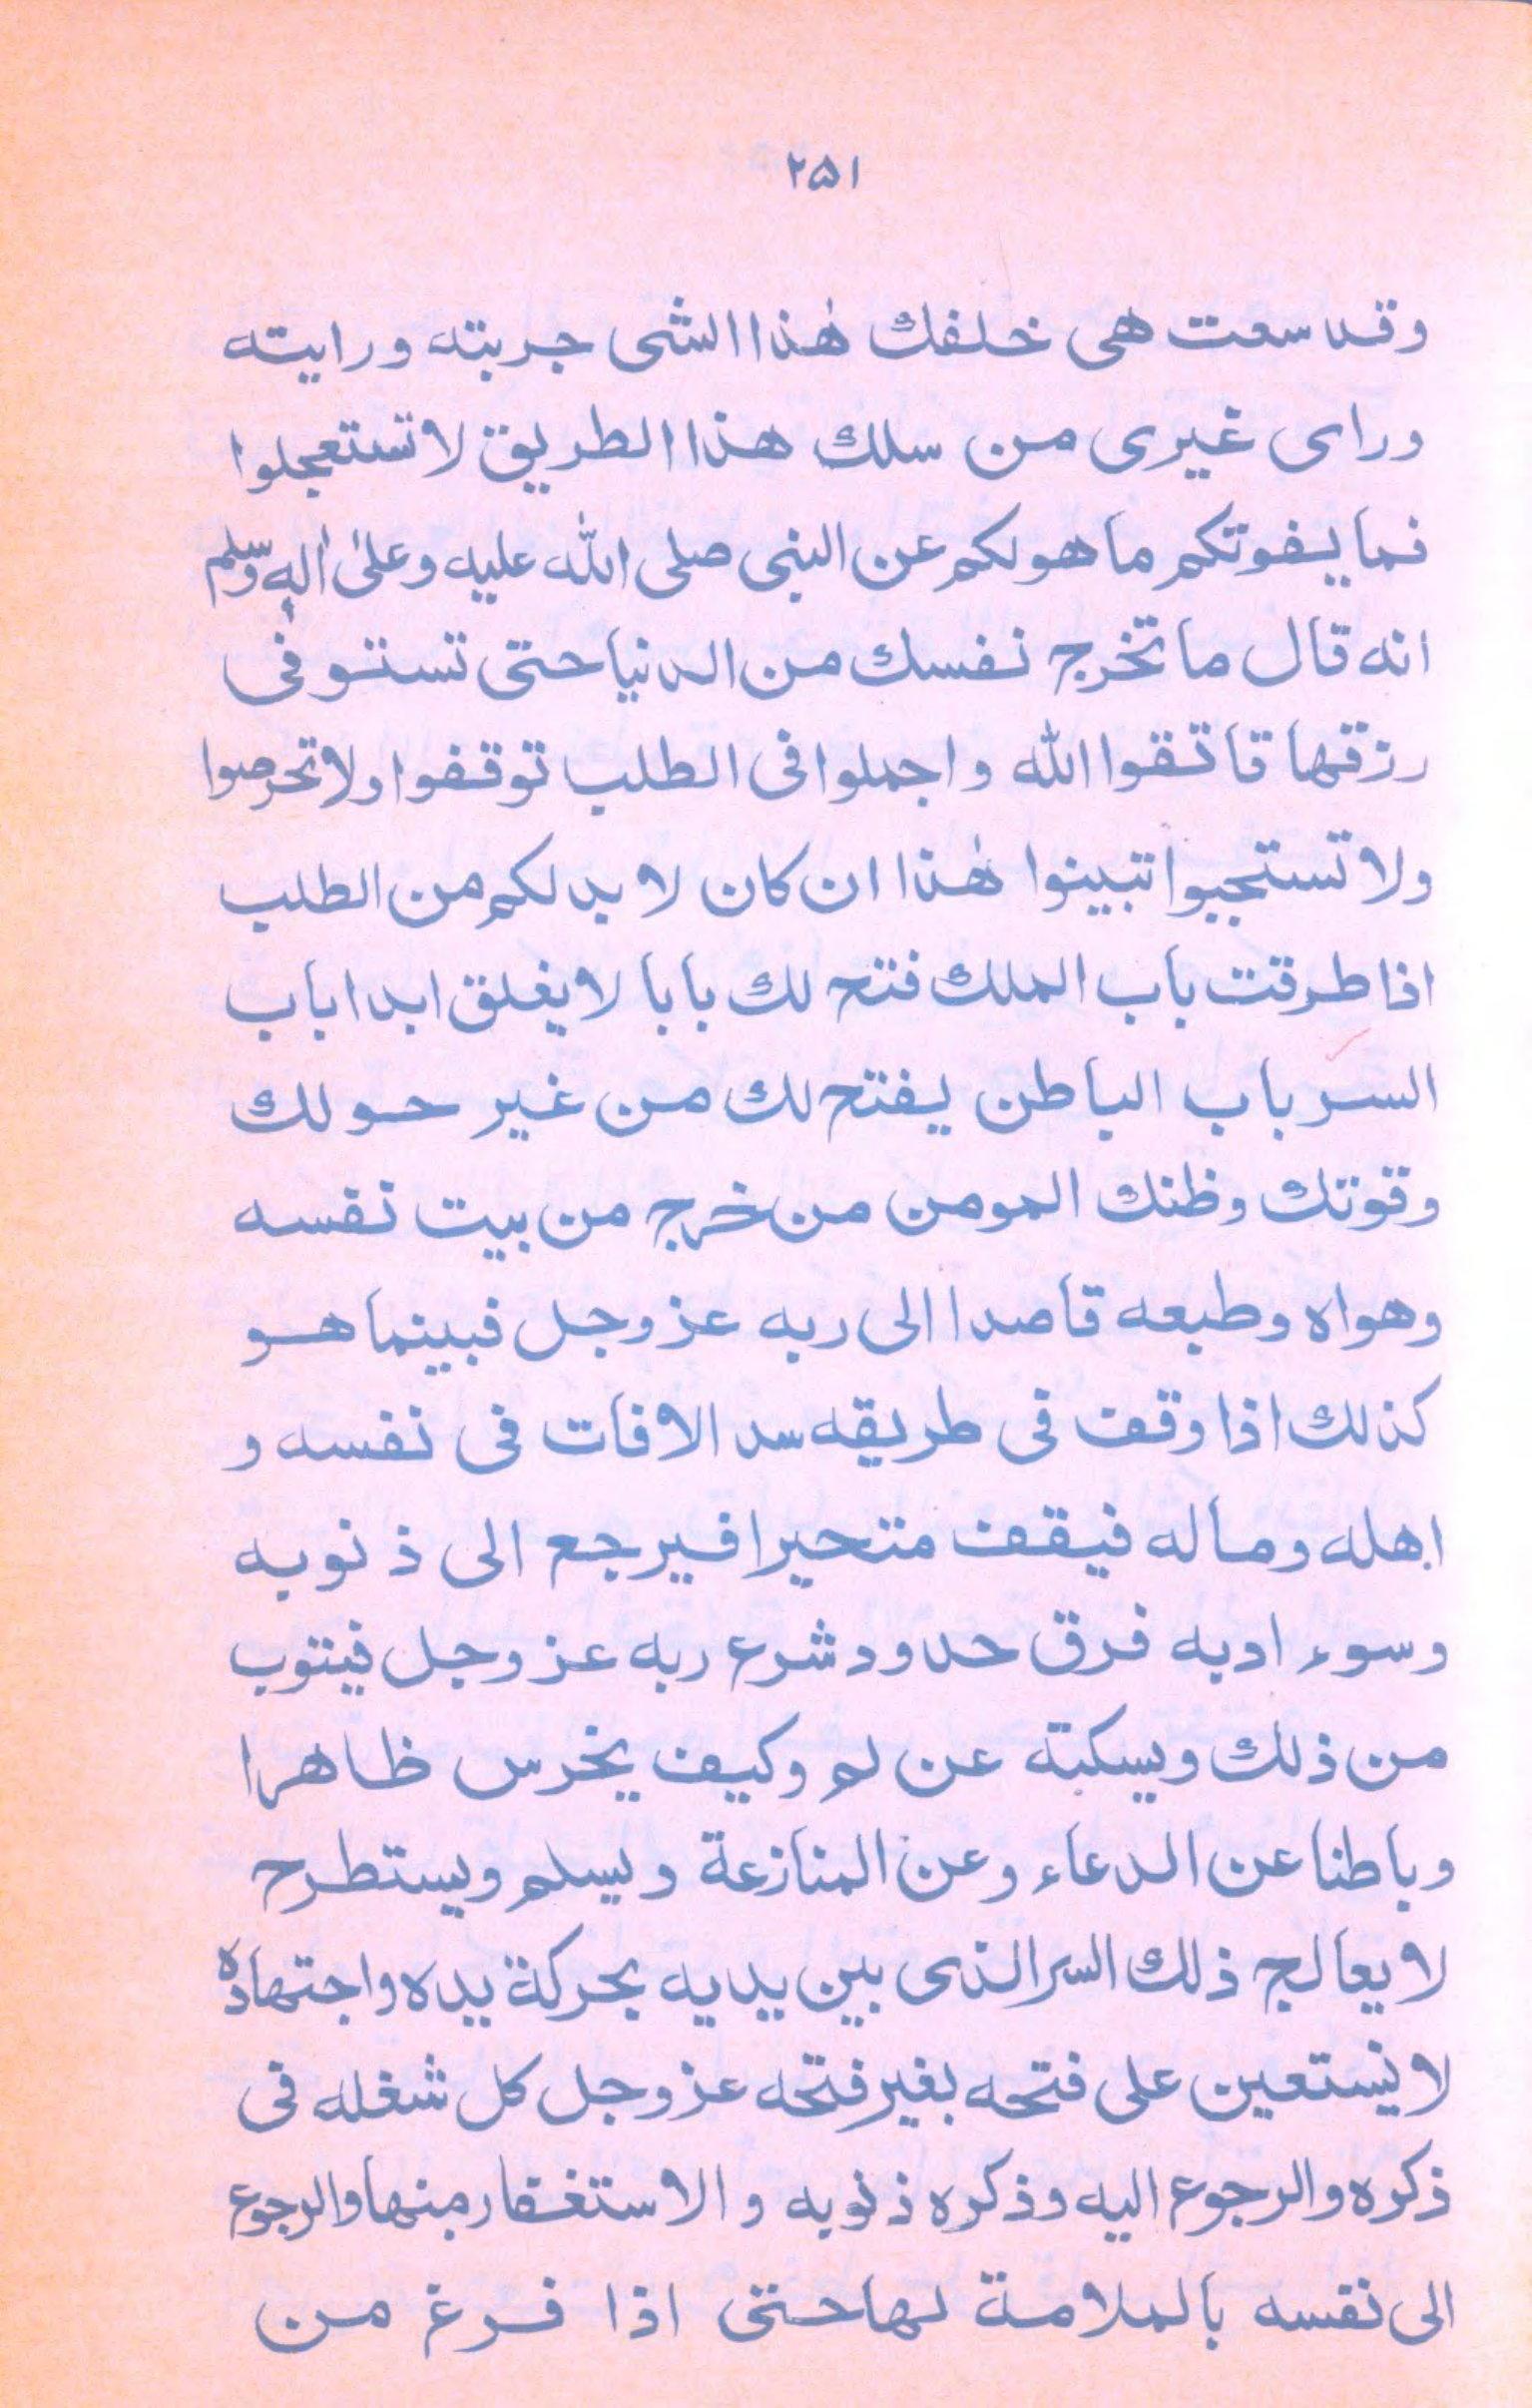 ۲۵۱
وقد سعت هی خلفك هٰذا الشی جربته ورایته
ورای غیری من سلك هذا الطریق لا تستعجلوا
فما یفوتکم ما هو لکم عن النبی صلی اللّٰه علیه وعلیٰ اٰلهٖ وسلم
انه قال ما تخرج نفسك من الدنیا حتی تستوفی
رزقها قاتقوا اللّٰه واجملوا فی الطلب توقفوا ولا تحرصوا
ولا تستجیوا تبینوا هٰذا ان کان لا بد لکم من الطلب
اذا طرقت باب الملك فتح لك بابا لا یغلق ابدا باب
السر باب الباطن یفتح لك من غیر حولك
وقوتك وظنك المومن من خرج من بیت نفسه
وهواه وطبعه قاصدا الی ربه عز وجل فبینما هو
کذلك اذا وقف فی طریقه سد الافات فی نفسه و
اهله وماله فیقف متحیرا فیرجع الی ذنوبه
وسوء ادبه فرق حدود شرع ربه عز وجل فیتوب
من ذلك ویسکبته عن لم وکیف یخرس ظاهرا
وباطنا عن الدعاء وعن المنازعة ویسلم ویستطرح
لا یعالج ذلك السر الذی بین یدیه بحرکة یده واجتهاده
لا نیستعین علی فتحه بغیر فتحه عز وجل کل شغله فی
ذکره والرجوع الیه وذکره ذنوبه والاستغفار منها والرجوع
الی نقسه بالملامة لها حتی اذا فرغ من